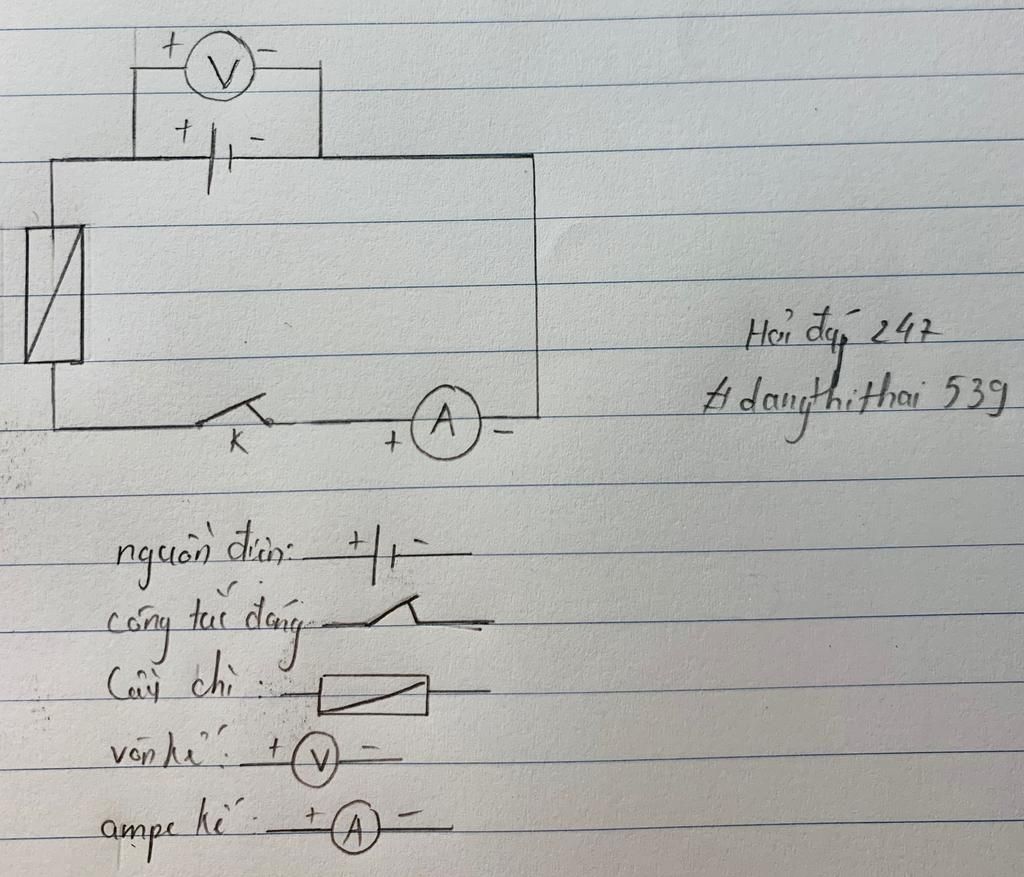 + V -
+ -
Hỏi đáp 247
#dangthithai539
K + A -
nguồn điện: + -
công tắc đóng
Cầu chì :
vôn kế : + V -
ampe kế : + A -